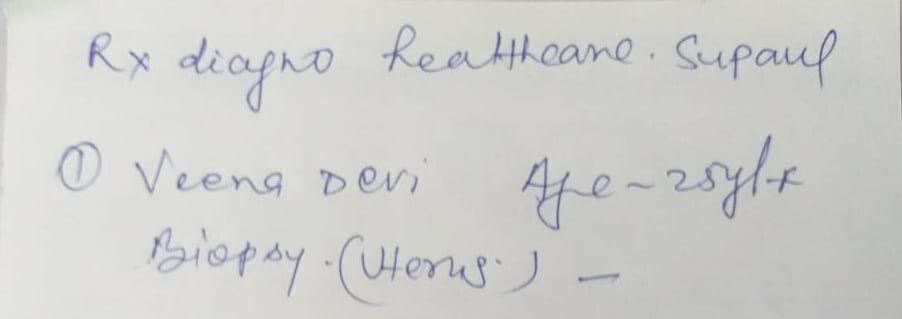 Rx diagno healthcare. Supaul
① Veena Devi Age - 25y/F
Biopsy. (Uterus.) -